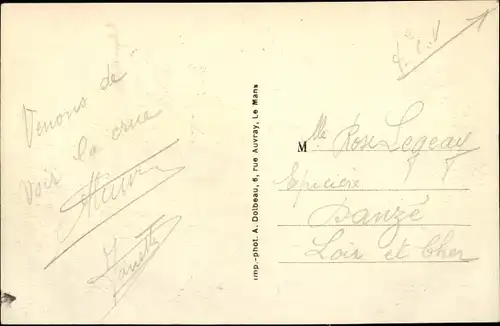 Venons de
voir la crue
Imp.-phot. A. Dolbeau, 6, rue Auvray, Le Mans
Mlle Rose Legeay
Epicière
Danzé
Loir et Cher